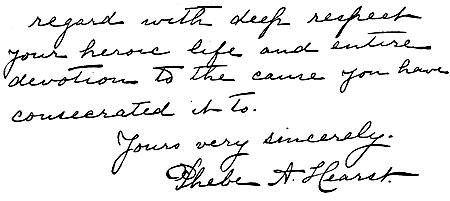 regard with deep respect
your heroic life and entire
devotion to the cause you have
consecrated it to.
Yours very sincerely.
Phebe A. Hearst.